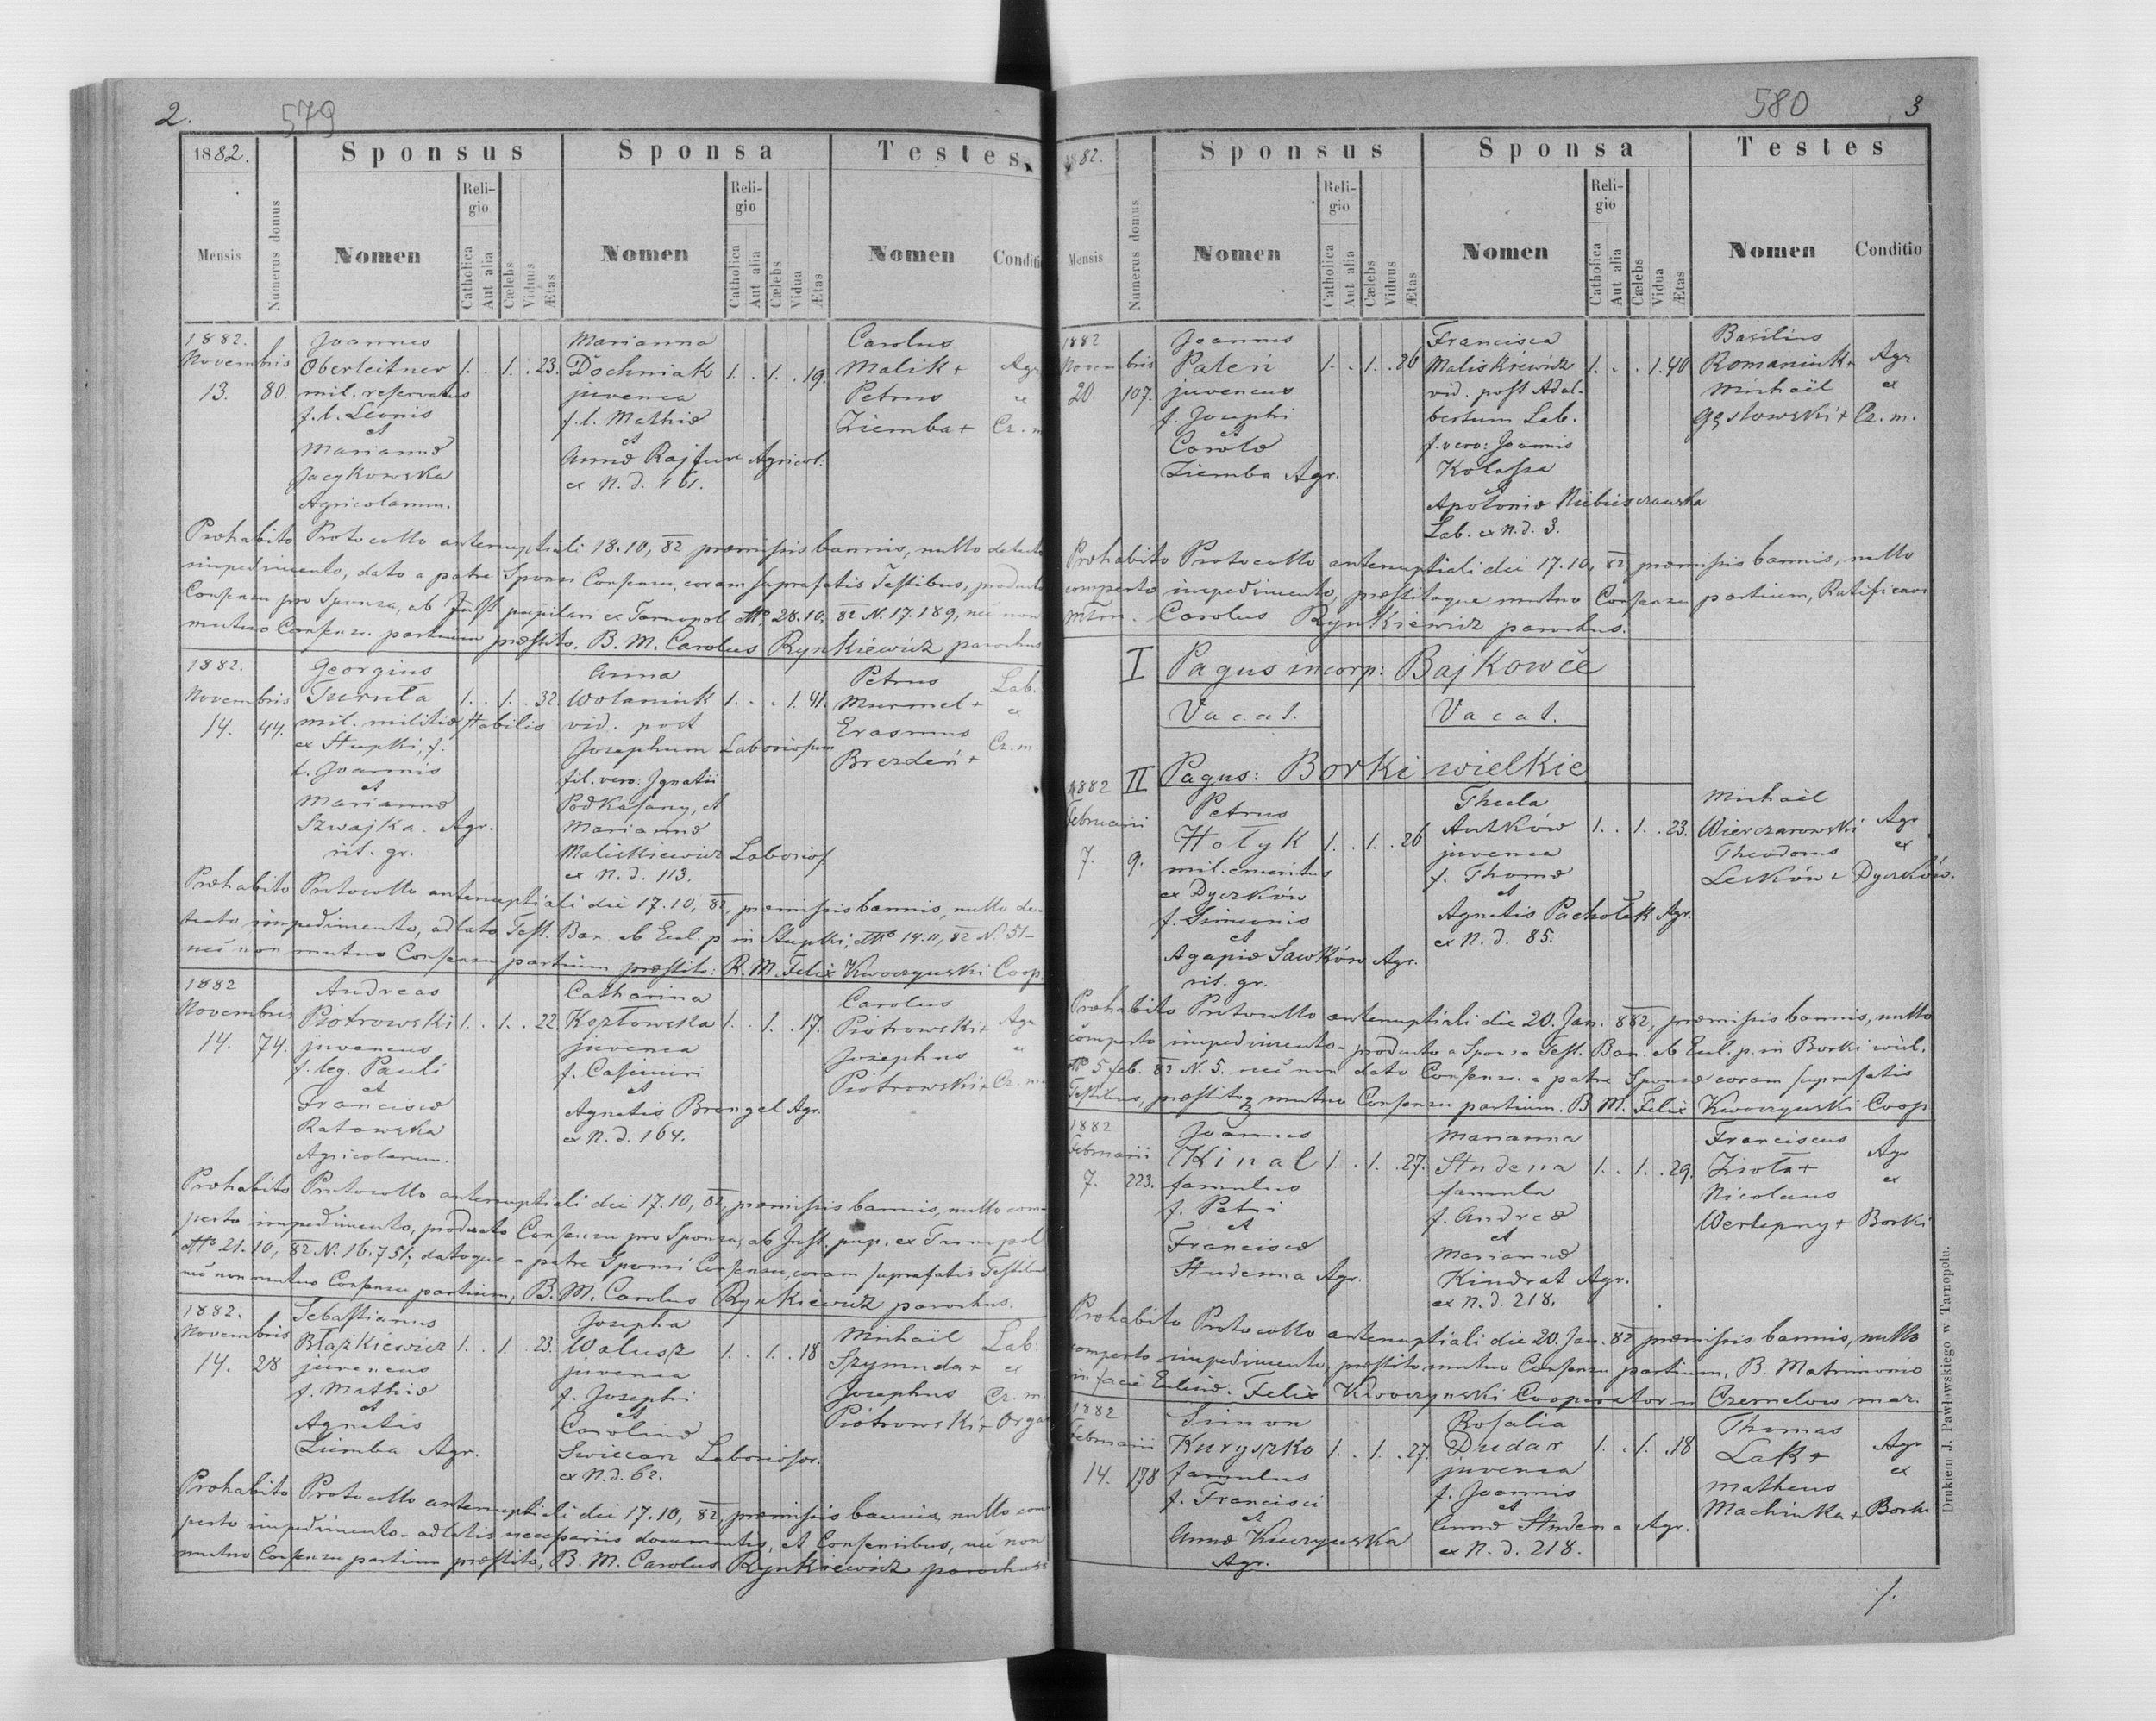 2.
579
1882. Sponsus Sponsa Testes.
Mensis Numerus domus Nomen Religio Catholica Aut alia Cælebs Viduus Ætas Nomen Religio Catholica Aut alia Cælebs Vidua Ætas Nomen Conditio
1882. Joannes Marianna Carolus
Novembris Oberleitner 1. . 1. . 23. Dochniak 1. . 1. . 19. Malik + Agr
13. 80. mil. reservatus juvenca Petrus ex
f. l. Leonis f. l. Mathiæ Ziemba + Cz. m
et et
Mariannæ Annæ Rajfur Agricol:
Jacykowska ex N. d. 161.
Agricolarum.
Præhabito Protocollo antenuptiali 18.10, 82 præmissis bannis, nullo detecto
impedimento, dato a patre Sponsi Consensu, coram suprafatis Testibus, producto
Consensu pro Sponsa, ab Inst pupilari ex Tarnopol dtto 28.10, 82 N. 17.189, nec non
mutuo Consensu partium præstito. B. M. Carolus Rynkiewicz parochus
1882. Georgius Anna Petrus Lab.
Novembris Turuła 1. . 1. . 32. Wolaniuk 1. . . 1. 41. Murmel + ex
14. 44. mil. militiæ stabilis vid. post Erasmus Cz. m.
ex Stupki, f. Josephum Laboriosum Brezdeń +
l. Joannis fil. vero: Ignatii
et Podkasany, et
Mariannæ Mariannæ
Szwajka. Agr. Maliskiewicz Laborios
rit. gr. ex N. d. 113.
Præhabito Protocollo antenuptiali die 17.10, 82, præmissis bannis, nullo de-
tecto impedimento, adlato Test. Ban. ab Eccl. p. in Stupki; dtto 14.11, 82 N. 51-
nec non mutuo Consensu partium præstito: B. M. Felix Kwoczynski Coop.
1882 Andreas Catharina Carolus
Novembris Piotrowski 1. . 1. . 22. Kozłowska 1. . 1. . 17. Piotrowski + Agr
14. 74. juvencus juvenca Josephus ex
f. leg. Pauli f. Casimiri Piotrowski + Cz. m
et et
Franciscæ Agnetis Brengel Agr.
Ratowska ex N. d. 164.
Agricolarum.
Præhabito Protocollo antenuptiali die 17.10, 82, præmissis bannis, nullo com-
perto impedimento, producto Consensu pro Sponsa, ab Inst. pup. ex Tarnopol
dtto 21.10, 82 N. 16.751; datoque a patre Sponsi Consensu, coram suprafatis Testibus
nec non mutuo Consensu partium, B. M. Carolus Rynkiewicz parochus.
1882. Sebastianus Josepha Michaël Lab:
Novembris Błażkiewicz 1. . 1. . 23. Walusz 1. . 1. . 18 Szymuda + ex
14. 28 juvencus juvenca Josephus Cz. m.
f. Mathiæ f. Josephi Piotrowski + Orga
et et
Agnetis Carolinæ
Ziemba Agr. Swiccarz Laborios.
ex N. d. 62.
Præhabito Protocollo antenuptiali die 17.10, 82, præmissis bannis, nullo com
perto impedimento - adlatis necessariis documentis, et Consensibus, nec non
mutuo Consensu partium præstito, B. M. Carolus Rynkiewicz parochus
580
3
1882. Sponsus Sponsa Testes
Mensis Numerus domus Nomen Religio Catholica Aut alia Cælebs Viduus Ætas Nomen Religio Catholica Aut alia Cælebs Vidua Ætas Nomen Conditio
1882 Joannes Francisca Basilius
Novembris Pateń 1. . 1. . 26 Maliskiewicz 1. . . 1. 40 Romaniuk + Agr
20. 107. juvencus vid. post Adal- Michaël ex
f. Josephi bertum Lab. Gęstowski + Cz. m.
et f. vero: Joannis
Carolæ Kolassa
Ziemba Agr. et
Apoloniæ Niebieszczawska
Lab. ex N. d. 3.
Præhabito Protocollo antenuptiali die 17.10, 82, præmissis bannis, nullo
comperto impedimento, præstitoque mutuo Consensu partium, Ratificavi
Mtrm. Carolus Rynkiewicz parochus.
I Pagus incorp: Bajkowce
Vacat. Vacat.
II Pagus: Borki wielkie
1882 Petrus Thecla Michaël
Februarii Hołyk 1. . 1. . 26 Antków 1. . 1. . 23. Wierczarowski Agr
7. 9. mil. emeritus juvenca Theodorus ex
ex Dyczków f. Thomæ Leśków + Dyczków.
f. Simeonis et
et Agnetis Pachołek Agr.
Agapiæ Sawków Agr. ex N. d. 85.
rit. gr.
Præhabito Protocollo antenuptiali die 20. Jan. 882, præmissis bannis, nullo
comperto impedimento - producto a Sponso Test. Ban. ab Eccl. p. in Borki wiel.
dtto 5 feb. 82 N. 5. nec non dato Consensu a patre Sponsæ coram suprafatis
Testibus, præstitoq mutuo Consensu partium. B M. Felix Kwoczynski Coop
1882 Joannes Marianna Franciscus
Februarii Kinal 1. . 1. . 27. Studena 1. . 1. . 29. Zioła + Agr
7. 223. famulus famula Nicolaus ex
f. Petri f. Andreæ Wertepny + Borki
et et
Franciscæ Mariannæ
Studenna Agr. Kindrat Agr.
ex N. d. 218.
Præhabito Protocollo antenuptiali die 20. Jan. 82 præmissis bannis, nullo
comperto impedimento, præstito mutuo Consensu partium, B. Matrimonio
in facie Eccliæ. Felix Kwoczynski Cooperator in Czernelow maz.
1882 Simon Rosalia Thomas
Februarii Kuryszko 1. . 1. . 27. Dudar 1. . 1. . 18 Lak + Agr
14. 178 famulus juvenca Matheus ex
f. Francisci f. Joannis Machinka + Borki
et et
Annæ Kuczynska Annæ Studena Agr.
Agr. ex N. d. 218.
Drukiem J. Pawłowskiego w Tarnopolu.
./.